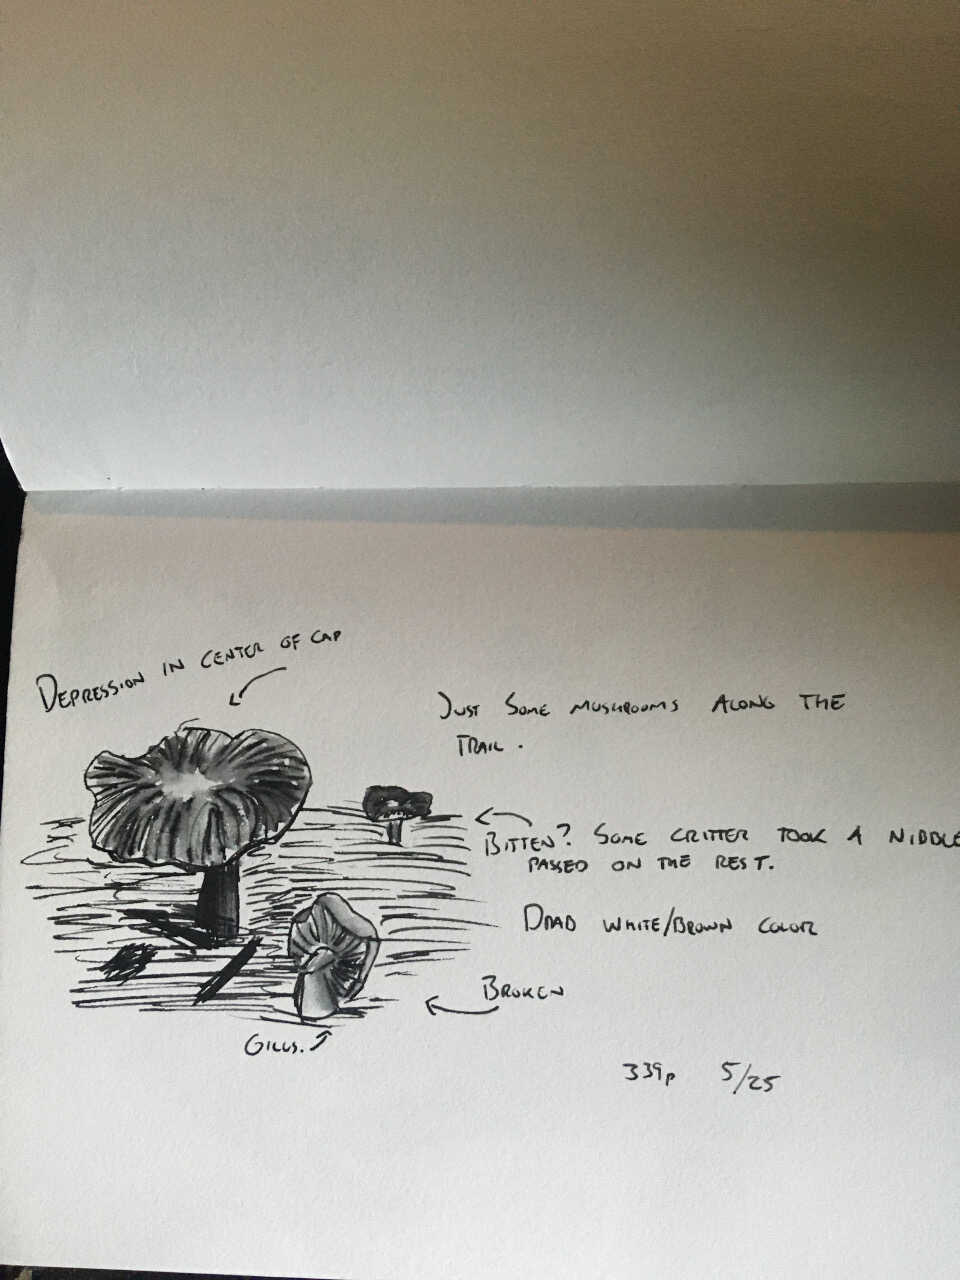 DEPRESSION IN CENTER OF CAP
JUST SOME MUSHROOMS ALONG THE
TRAIL.
BITTEN? SOME CRITTER TOOK A NIDDLE
PASSED ON THE REST.
DRAD WHITE/BROWN COLOR
BROKEN
GILLS.
339p 5/25